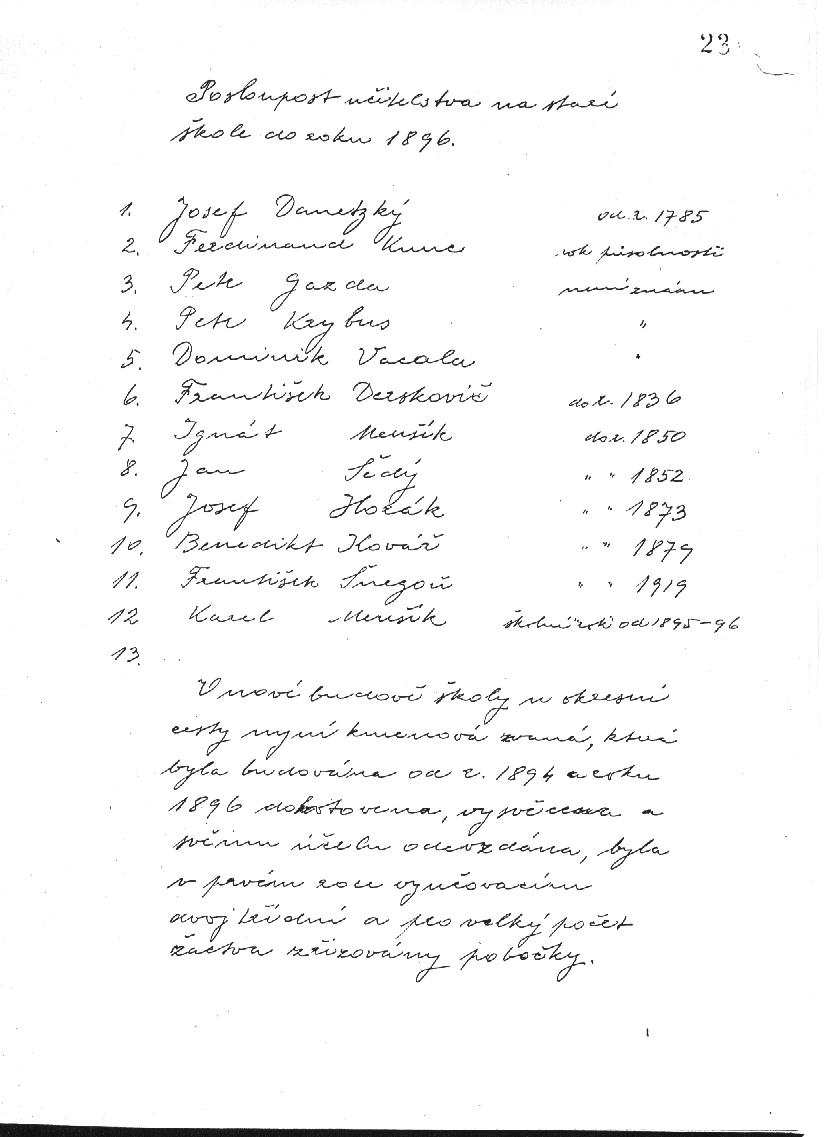 23
Posloupost učitelstva na staré
škole do roku 1896.
1. Josef Danetzký od r. 1785
2. Ferdinand Kunc rok působnosti
3. Petr Gazda není znám
4. Petr Krybus "
5. Dominik Vacala "
6. František Derskovič do r. 1836
7. Ignát Menšík do r. 1850
8. Jan Šedý " " 1852
9. Josef Horák " " 1873
10. Benedikt Kovář " " 1879
11. František Šnegoň " " 1919
12 Karel Menšík školní rok od 1895-96
13.
V nové budově školy u okresní
cesty nyní kmenová zvaná, která
byla budována od r. 1894 a roku
1896 dohotovena, vysvěcena a
svému účelu odevzdána, byla
v prvém roce vyučovacím
dvojtřídní a pro velký počet
žactva zřizovány pobočky.